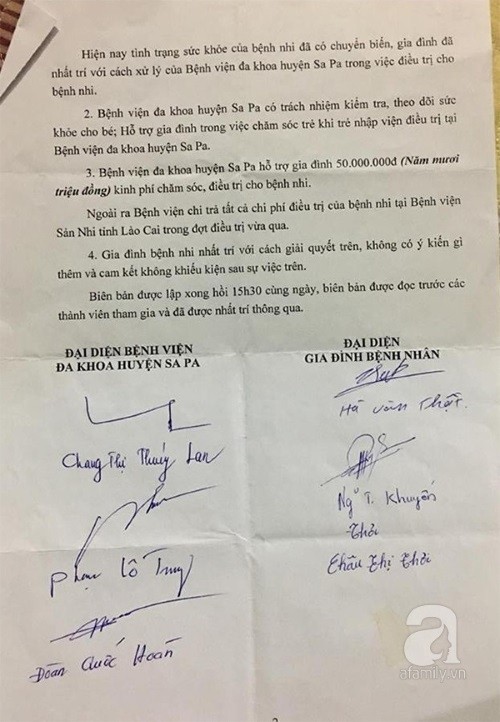 Hiện nay tình trạng sức khỏe của bệnh nhi đã có chuyển biến, gia đình đã
nhất trí với cách xử lý của Bệnh viện đa khoa huyện Sa Pa trong việc điều trị cho
bệnh nhi.
2. Bệnh viện đa khoa huyện Sa Pa có trách nhiệm kiểm tra, theo dõi sức
khỏe cho bé; Hỗ trợ gia đình trong việc chăm sóc trẻ khi trẻ nhập viện điều trị tại
Bệnh viện đa khoa huyện Sa Pa.
3. Bệnh viện đa khoa huyện Sa Pa hỗ trợ gia đình 50.000.000đ (Năm mươi
triệu đồng) kinh phí chăm sóc, điều trị cho bệnh nhi.
Ngoài ra Bệnh viện chi trả tất cả chi phí điều trị của bệnh nhi tại Bệnh viện
Sản Nhi tỉnh Lào Cai trong đợt điều trị vừa qua.
4. Gia đình bệnh nhi nhất trí với cách giải quyết trên, không có ý kiến gì
thêm và cam kết không khiếu kiện sau sự việc trên.
Biên bản được lập xong hồi 15h30 cùng ngày, biên bản được đọc trước các
thành viên tham gia và đã được nhất trí thông qua.
ĐẠI DIỆN BỆNH VIỆN
ĐA KHOA HUYỆN SA PA
Chang Thị Thúy Lan
Phạm Lô Trung
Đoàn Quốc Hoàn
ĐẠI DIỆN
GIA ĐÌNH BỆNH NHÂN
Hà Văn Thật
Ng T. Khuyến
Thơi
Châu Thị Thơi
a
afamily.vn